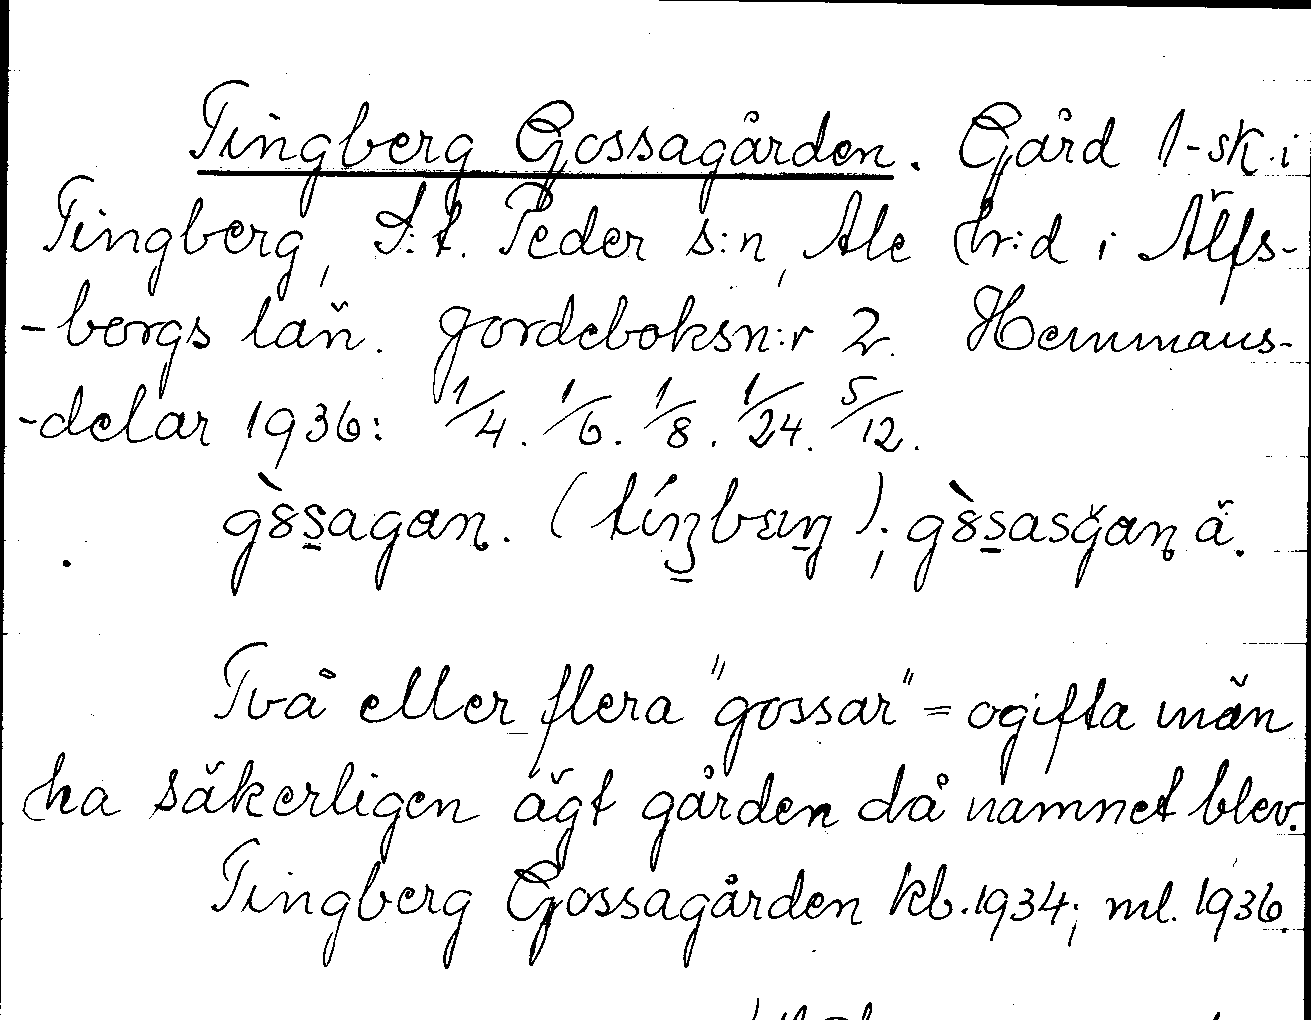 Tingberg Gossagården. Gård 1-sk. i
Tingberg, S:t. Peder s:n, Ale hr:d i Älfs-
-borgs län. Jordeboksn:r 2. Hemmans-
-delar 1936: 1/4. 1/6. 1/8. 1/24. 5/12.
Två eller flera "gossar" = ogifta män
ha säkerligen ägt gården då namnet blev.
Tingberg Gossagården kb. 1934; ml. 1936.